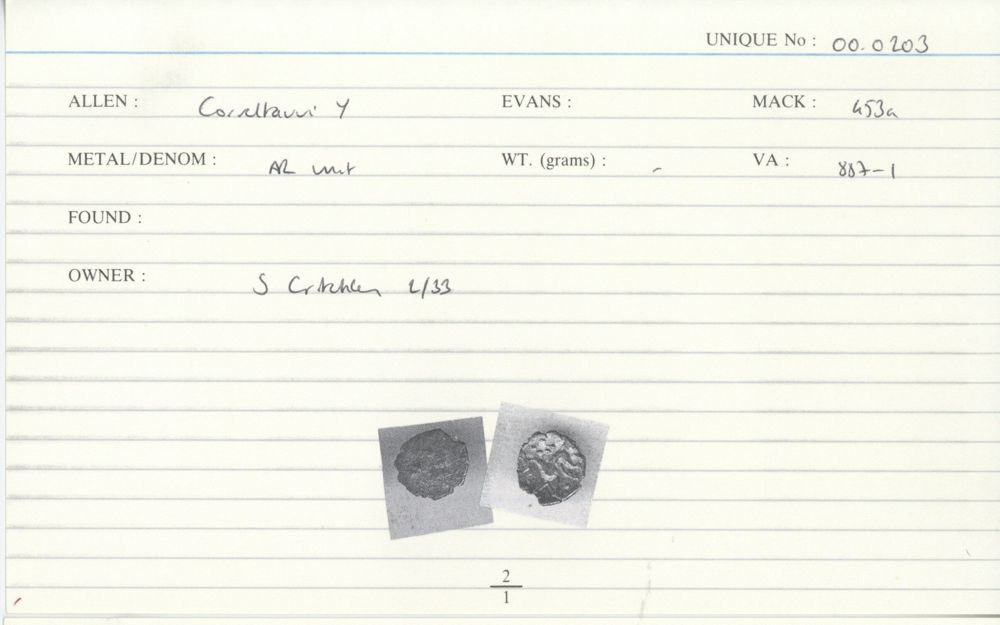 UNIQUE No : 00.0203
ALLEN : Corieltauvi Y EVANS : MACK : 453a
METAL/DENOM : AR unit WT. (grams) : - VA : 887-1
FOUND :
OWNER : S Critchley 2/33
2
1